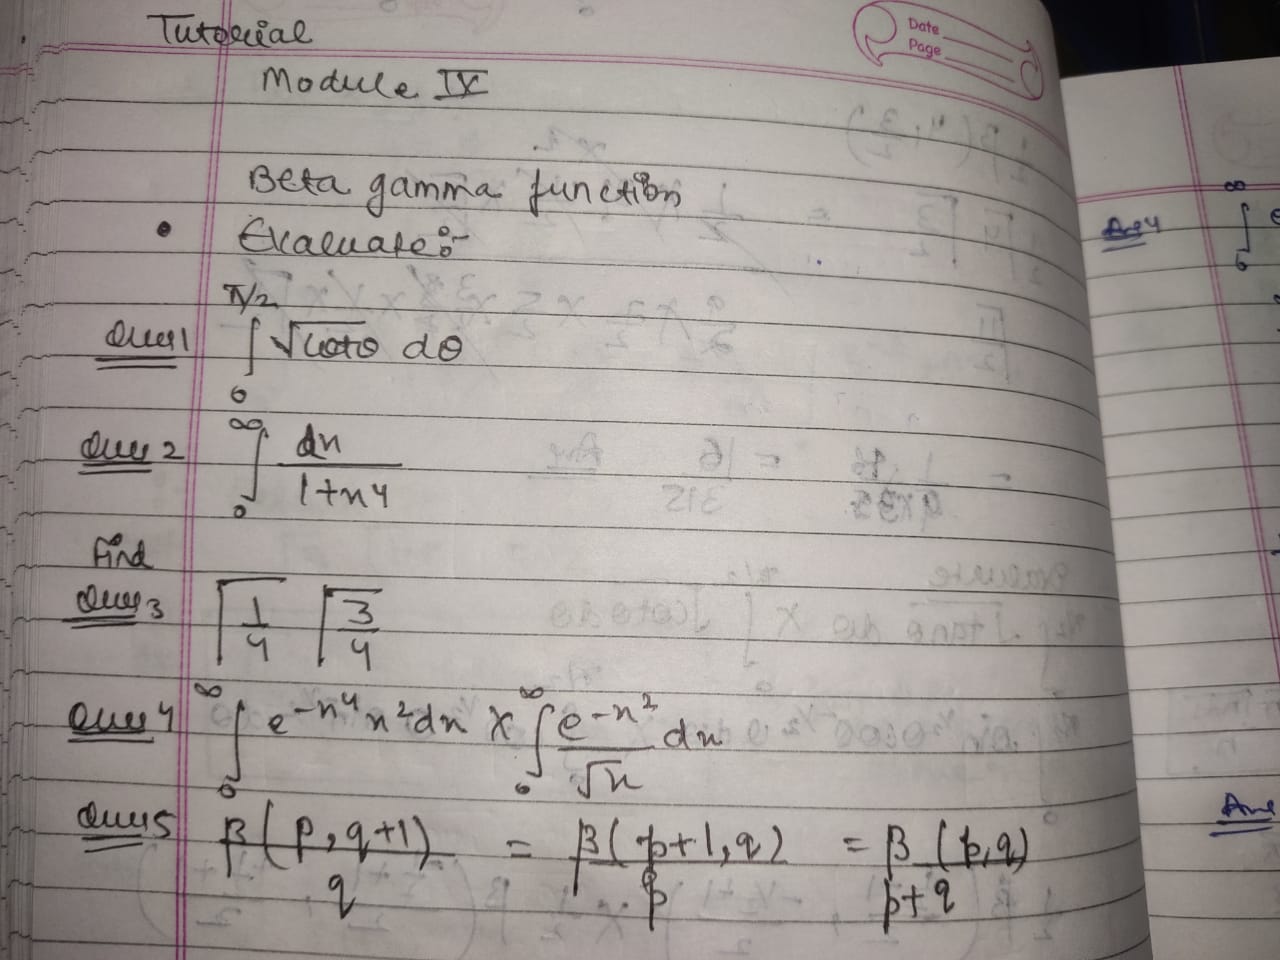 Date
Page
Tutorial
Module IV
Beta gamma function
Evaluate:-
Ques 1 ∫₀^π/2 √cotθ dθ
Ques 2 ∫₀^∞ dx / 1+x⁴
Find
Ques 3 Γ1/4 Γ3/4
Ques 4 ∫₀^∞ e^-x⁴ x² dx × ∫₀^∞ e^-x² / √x dx
Ques 5 β(p, q+1) / q = β(p+1, q) / p = β(p, q) / p+q
Ans 4
Ans